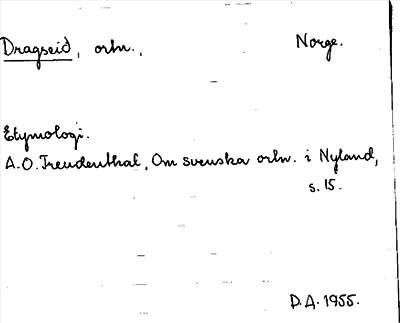 Dragseid, ortn., Norge.
Etymologi.
A.O. Freudenthal, Om svenska ortn. i Nyland,
s. 15.
P.A. 1955.